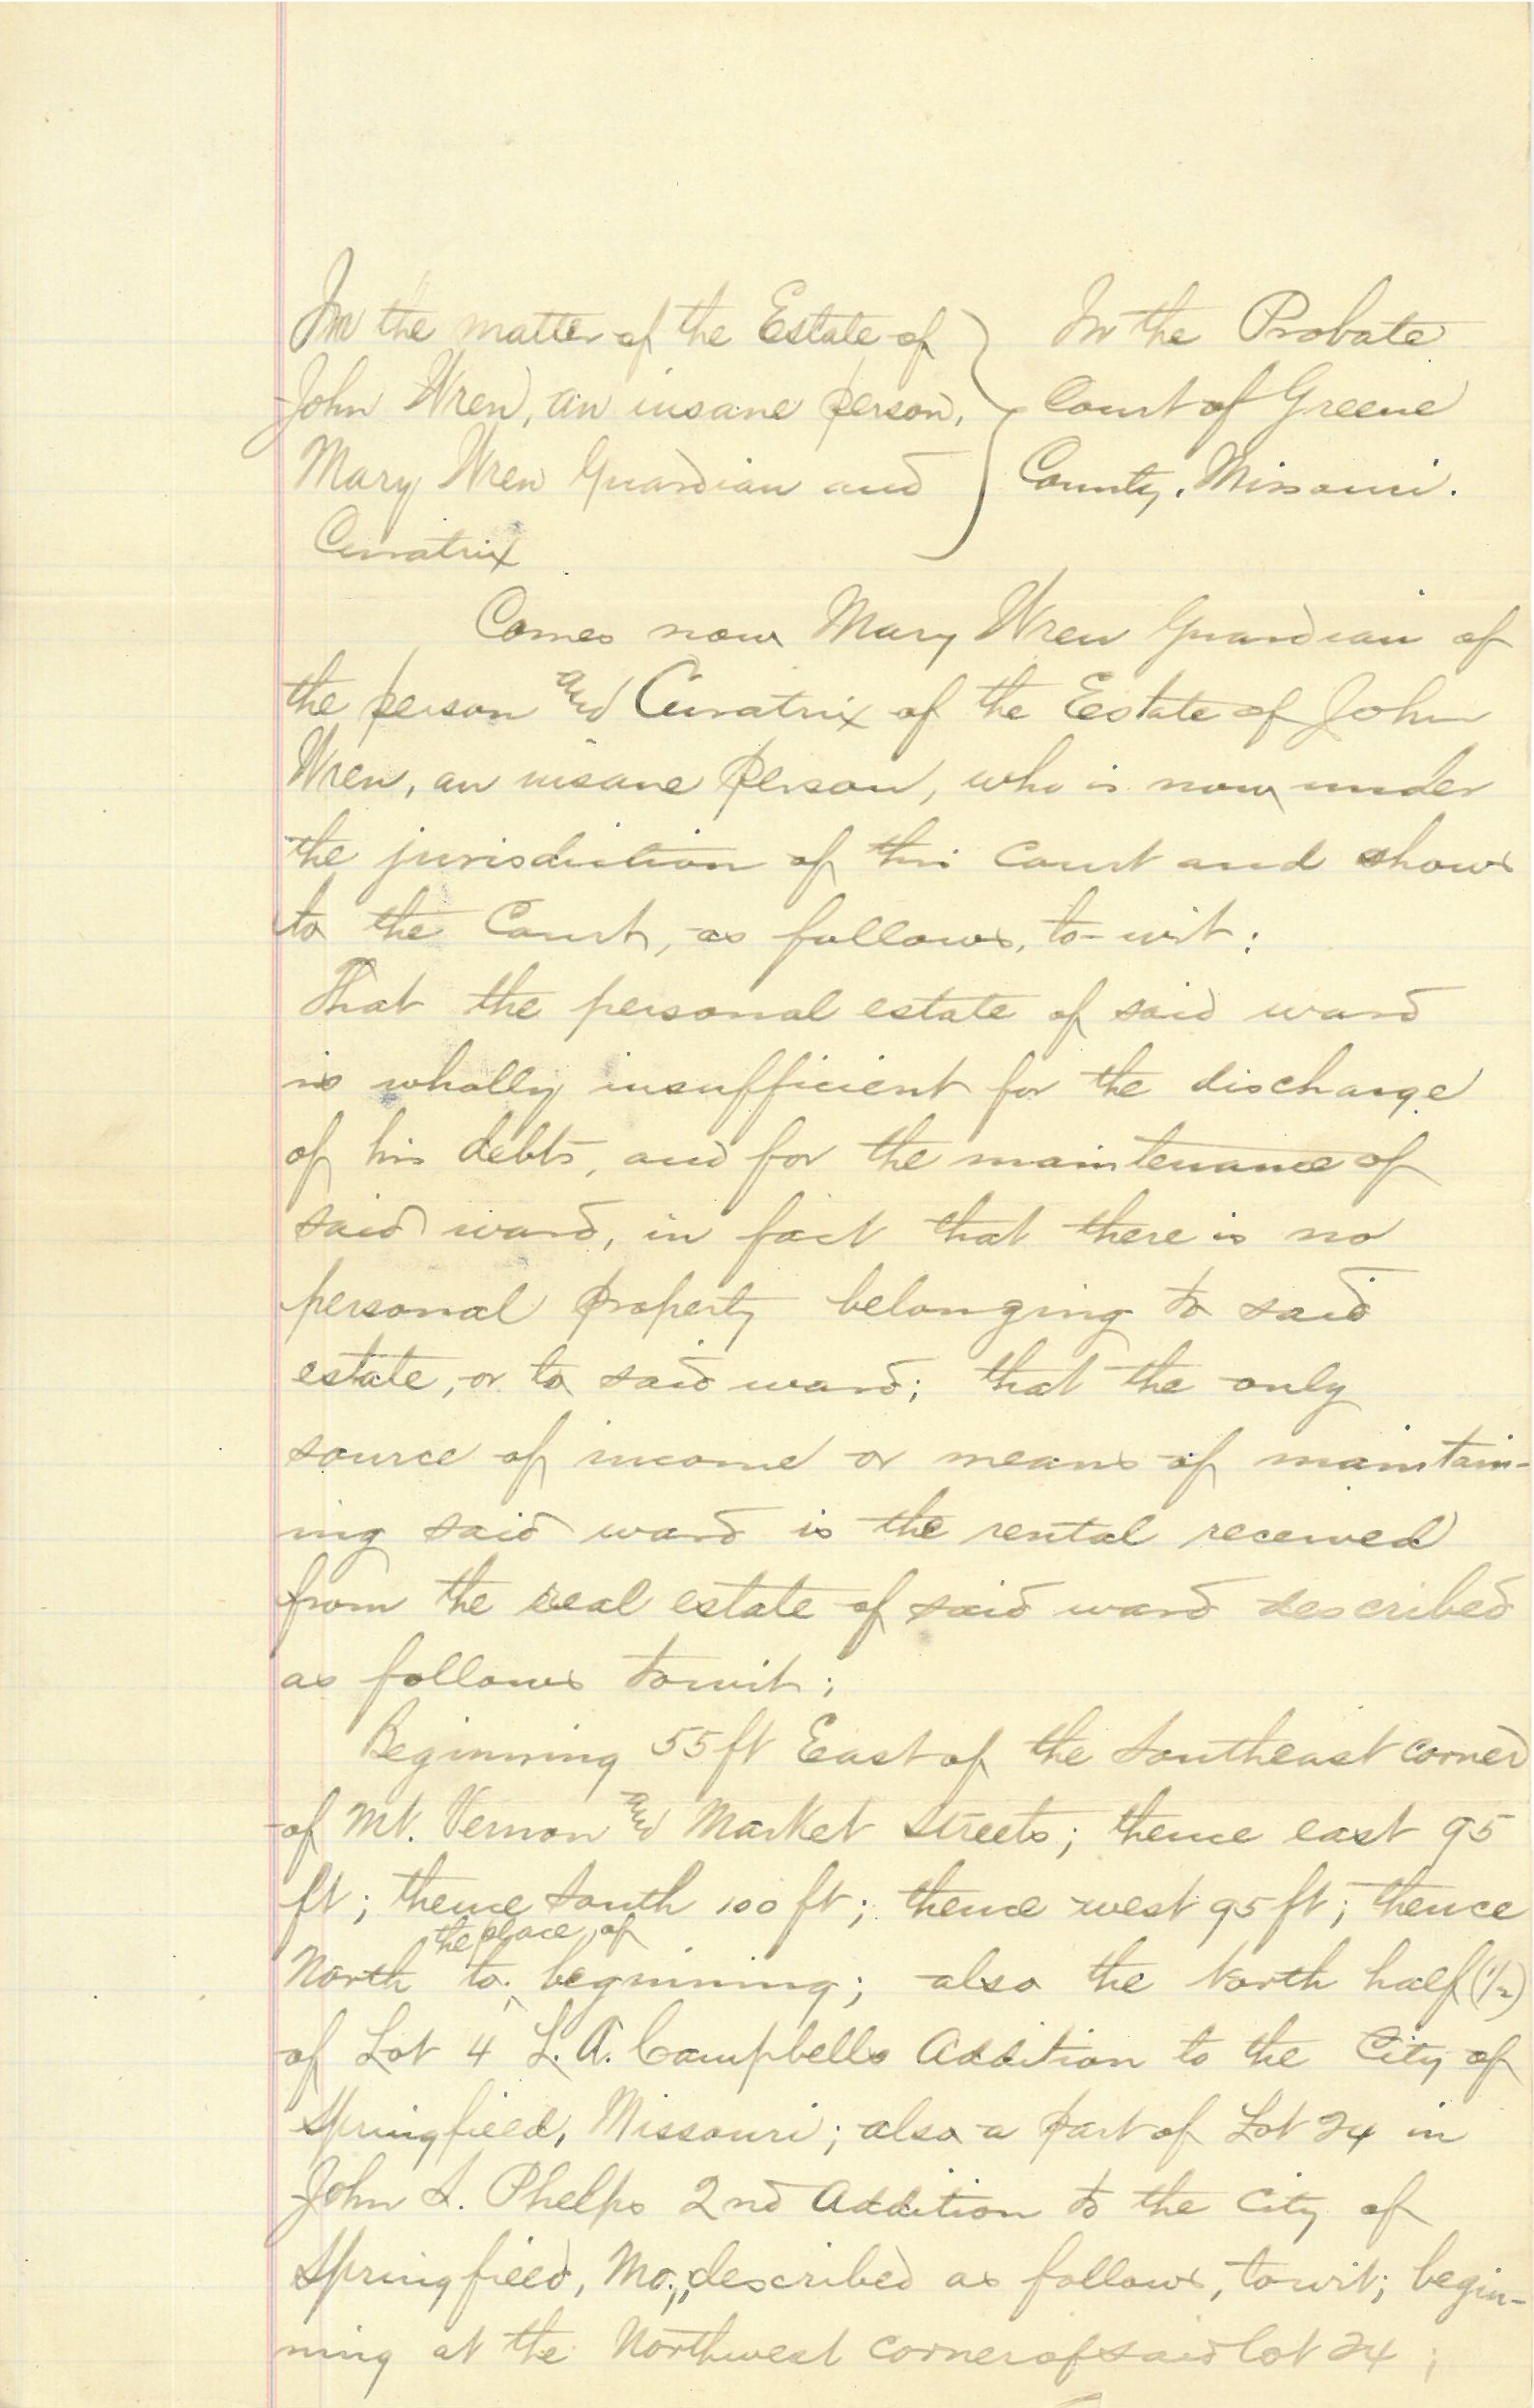 In the matter of the Estate of } In the Probate
John Wren, an insane person, } Court of Greene
Mary Wren Guardian and } County, Missouri.
Curatrix
Comes now Mary Wren Guardian of
the person and Curatrix of the Estate of John
Wren, an insane person, who is now under
the jurisdiction of this Court and shows
to the Court, as follows, to-wit:
That the personal estate of said ward
is wholly insufficient for the discharge
of his debts, and for the maintenance of
said ward, in fact that there is no
personal property belonging to said
estate, or to said ward; that the only
source of income or means of maintain-
ing said ward is the rental received
from the real estate of said ward described
as follows towit:
Beginning 55 ft East of the Southeast corner
of Mt. Vernon and Market Streets; thence east 95
ft; thence South 100 ft; thence west 95 ft; thence
the place of
North to beginning; also the North half (1/2)
of Lot 4 L. A. Campbells Addition to the City of
Springfield, Missouri; also a part of Lot 24 in
John S. Phelps 2nd Addition to the City of
Springfield, Mo., described as follows, towit; begin-
ning at the Northwest corner of said lot 24;